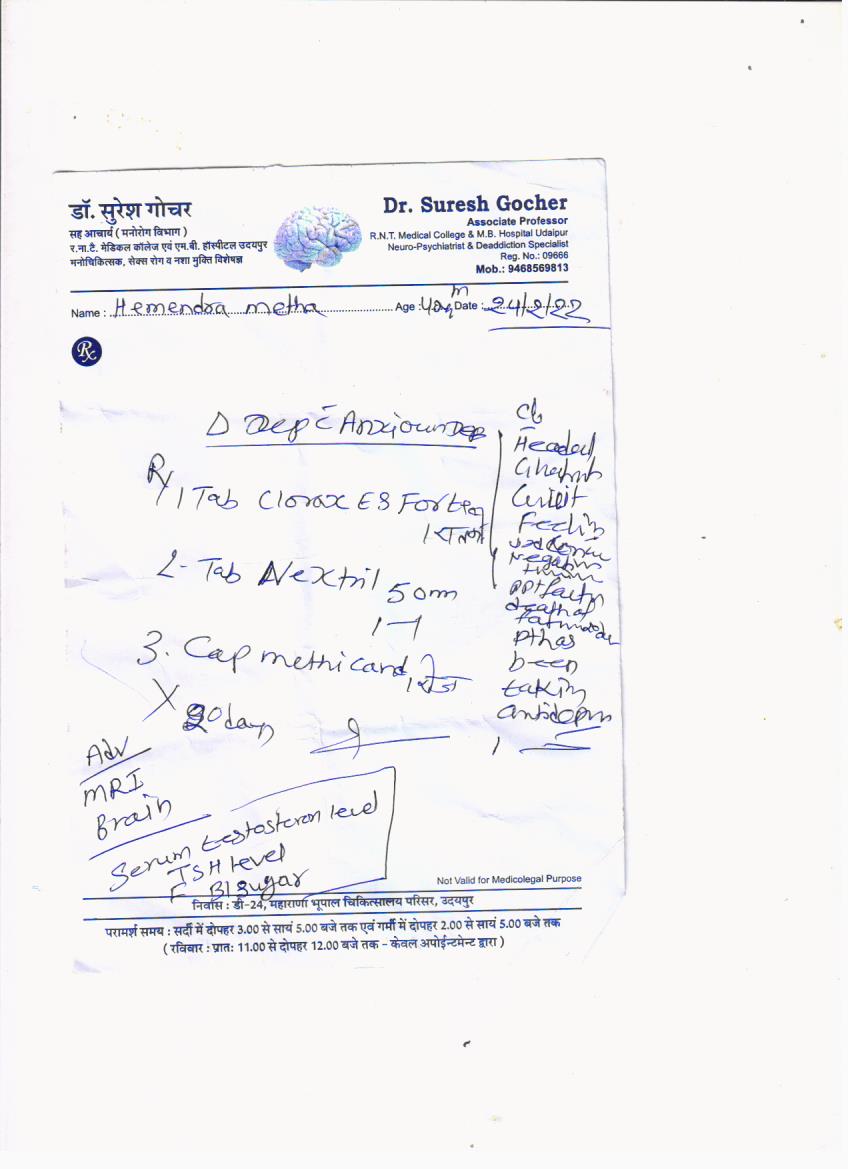 डॉ. सुरेश गोचर
सह आचार्य ( मनोरोग विभाग )
र.ना.टै. मेडिकल कॉलेज एवं एम.बी. हॉस्पीटल उदयपुर
मनोचिकित्सक, सेक्स रोग व नशा मुक्ति विशेषज्ञ
Dr. Suresh Gocher
Associate Professor
R.N.T. Medical College & M.B. Hospital Udaipur
Neuro-Psychiatrist & Deaddiction Specialist
Reg. No.: 09666
Mob.: 9468569813
Name : Hemendra metha Age : Date : 24/2/22
m
Rx
Dep c̄ Anxious Dep
Rx
1 Tab Clorax ES Forte
2- Tab Nextril 50m
1-1
3. Cap methicard
X 20 days
Feelin
Negativ
ppt factr
death of
Pt has
been
takin
Adv
MRI
Brain
Serum testosteron level
TSH level
F Bl sugar
Not Valid for Medicolegal Purpose
निवास : डी-24, महाराणा भूपाल चिकित्सालय परिसर, उदयपुर
परामर्श समय : सर्दी में दोपहर 3.00 से सायं 5.00 बजे तक एवं गर्मी में दोपहर 2.00 से सायं 5.00 बजे तक
( रविवार : प्रातः 11.00 से दोपहर 12.00 बजे तक - केवल अपोईन्टमेन्ट द्वारा )